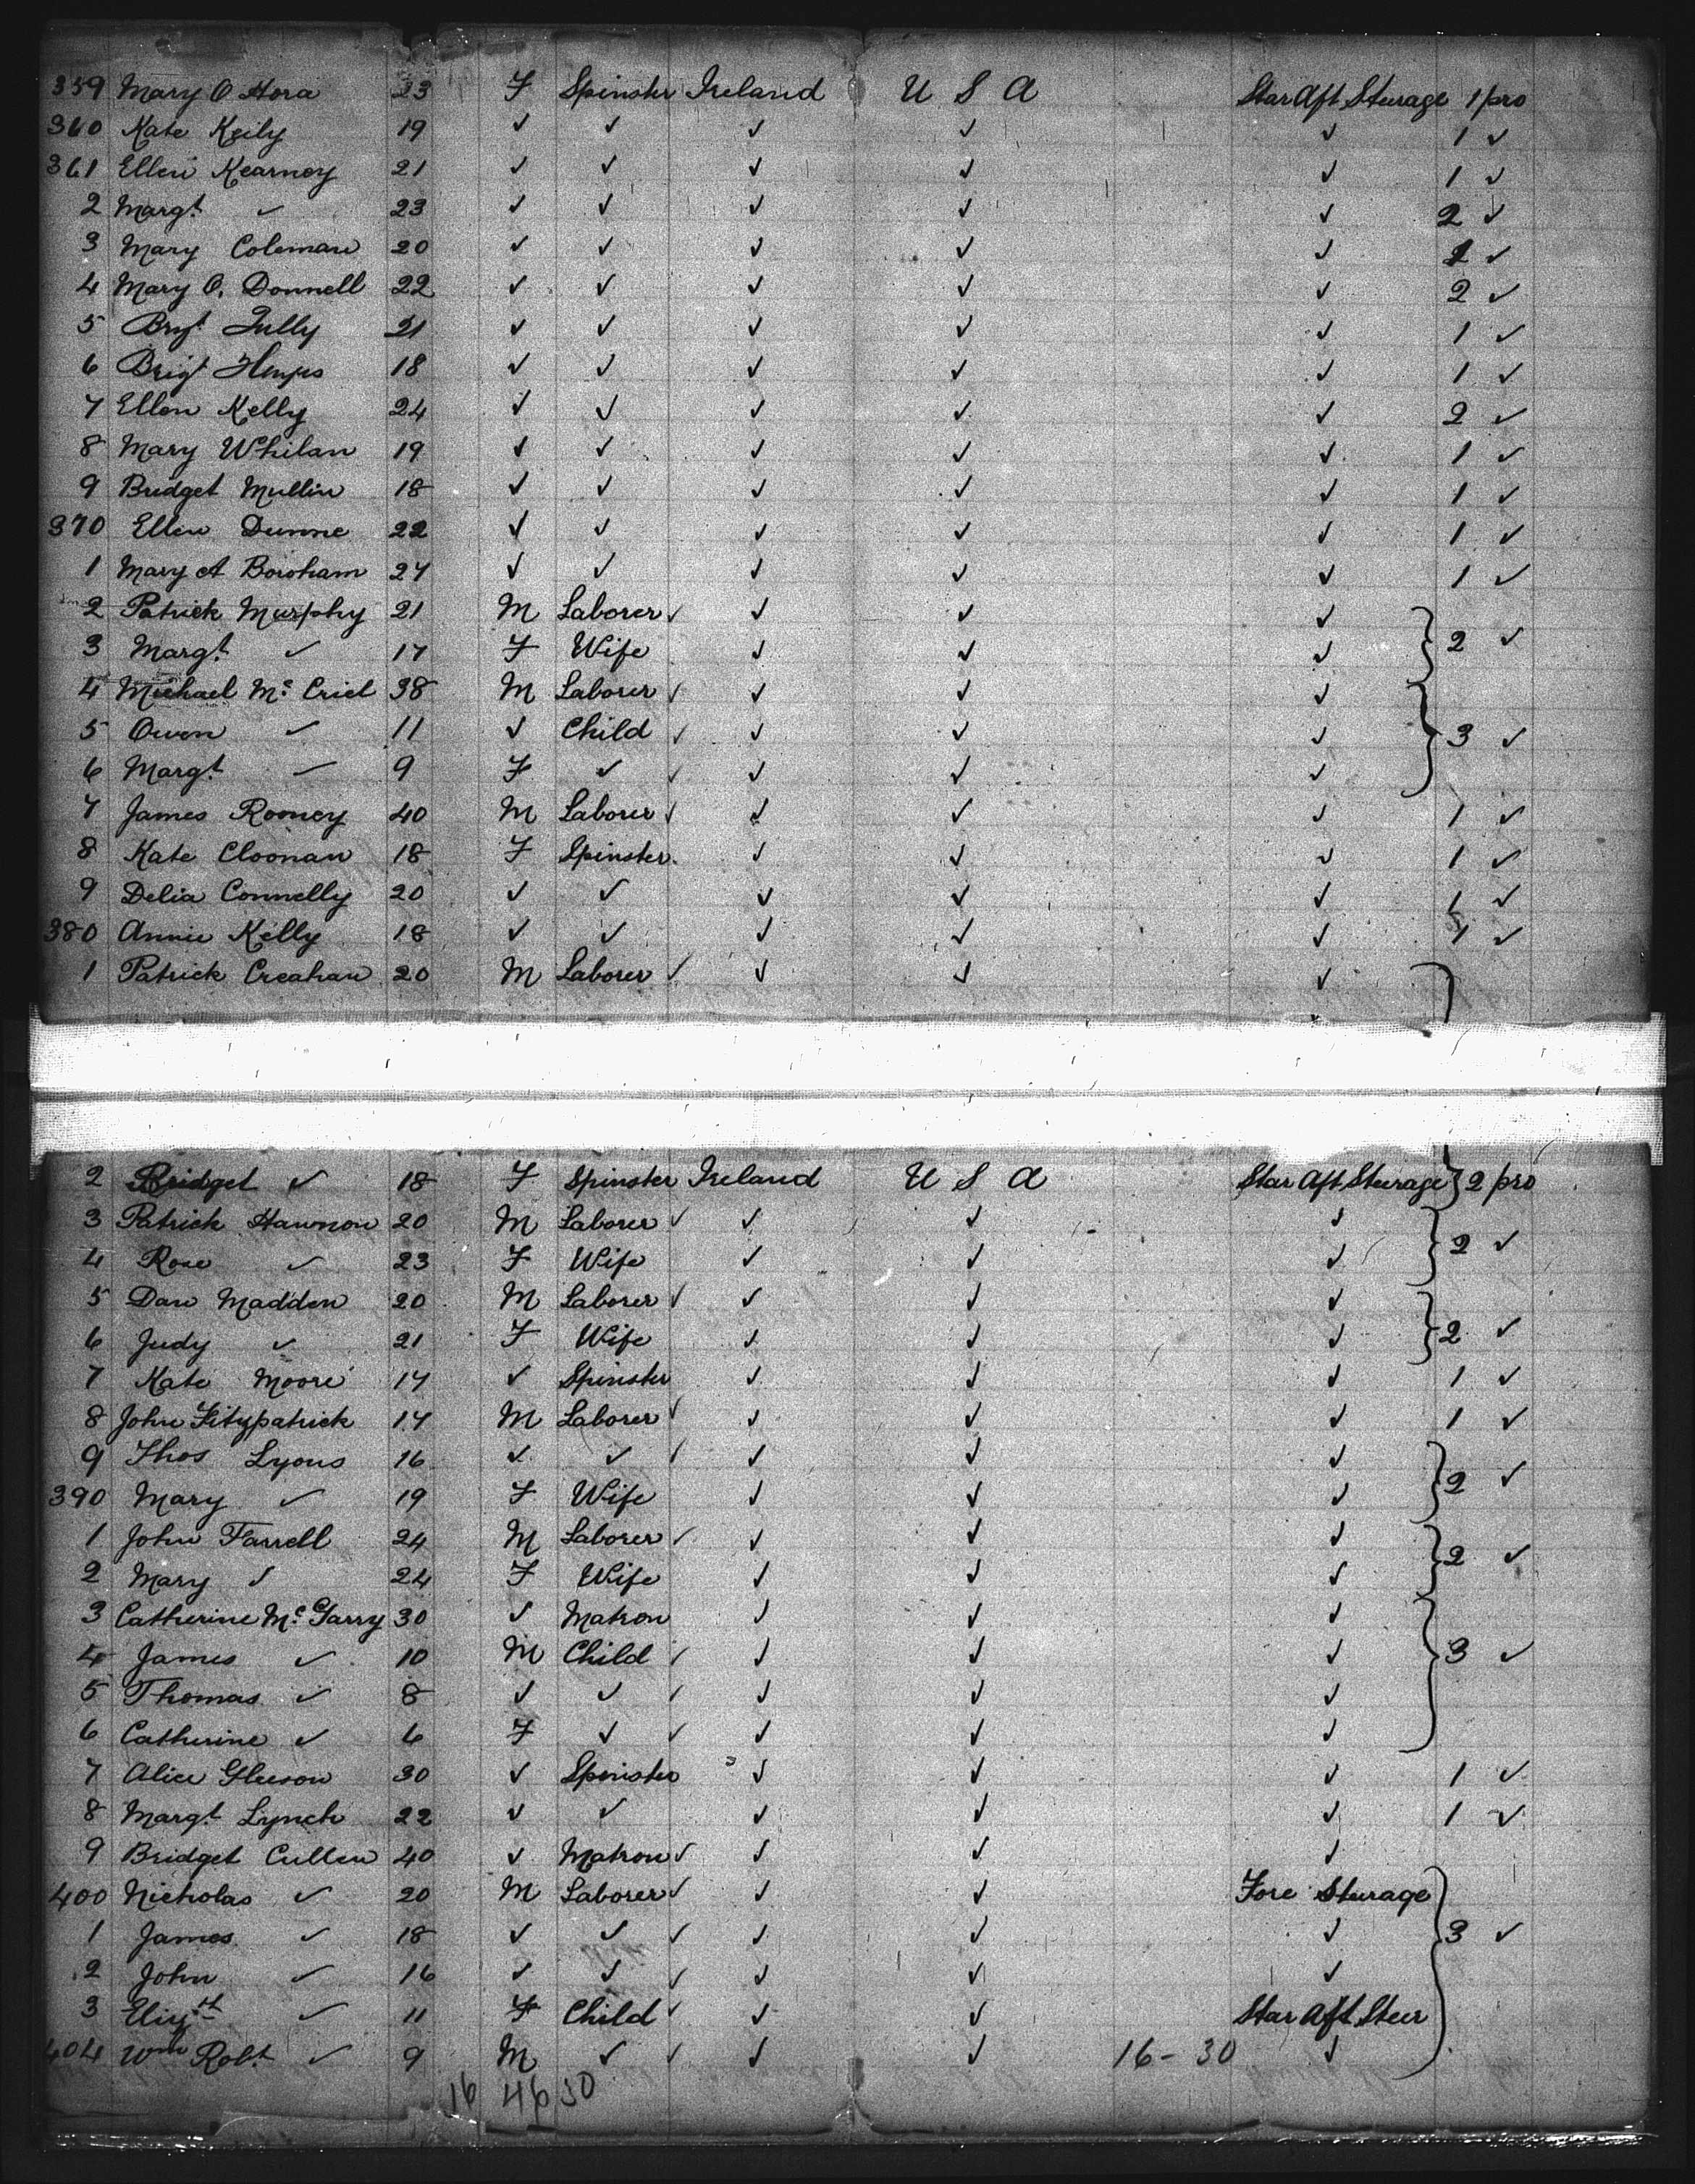 359 Mary O Hora 23 F Spinster Ireland U S A Star Aft Steerage 1 pro
360 Kate Keily 19 ✓ ✓ ✓ ✓ ✓ 1 ✓
361 Ellen Kearney 21 ✓ ✓ ✓ ✓ ✓ 1 ✓
2 Margt ✓ 23 ✓ ✓ ✓ ✓ ✓ 2 ✓
3 Mary Coleman 20 ✓ ✓ ✓ ✓ ✓ ✓
4 Mary O. Donnell 22 ✓ ✓ ✓ ✓ ✓ 2 ✓
5 Brgt Tully 21 ✓ ✓ ✓ ✓ ✓ 1 ✓
6 Brigt 18 ✓ ✓ ✓ ✓ ✓ 1 ✓
7 Ellen Kelly 24 ✓ ✓ ✓ ✓ ✓ 2 ✓
8 Mary Whilan 19 ✓ ✓ ✓ ✓ ✓ 1 ✓
9 Bridget Mullin 18 ✓ ✓ ✓ ✓ ✓ 1 ✓
370 Ellen Dunne 22 ✓ ✓ ✓ ✓ ✓ 1 ✓
1 Mary A Boroham 27 ✓ ✓ ✓ ✓ ✓ 1 ✓
2 Patrick Murphy 21 M Laborer ✓ ✓ ✓ ✓
3 Margt ✓ 17 F Wife ✓ ✓ ✓ } 2 ✓
4 Michael Mc Criel 38 M Laborer ✓ ✓ ✓ ✓
5 Owen ✓ 11 ✓ Child ✓ ✓ ✓ ✓ } 3 ✓
6 Margt ✓ 9 F ✓ ✓ ✓ ✓ ✓
7 James Rooney 40 M Laborer ✓ ✓ ✓ ✓ 1 ✓
8 Kate Cloonan 18 F Spinster ✓ ✓ ✓ 1 ✓
9 Delia Connelly 20 ✓ ✓ ✓ ✓ ✓ 1 ✓
380 Annie Kelly 18 ✓ ✓ ✓ ✓ ✓ 1 ✓
1 Patrick Creahan 20 M Laborer ✓ ✓ ✓ ✓
2 Bridget ✓ 18 F Spinster Ireland U S A Star Aft Steerage } 2 pro
3 Patrick Hawnon 20 M Laborer ✓ ✓ ✓ ✓
4 Rose ✓ 23 F Wife ✓ ✓ ✓ } 2 ✓
5 Dan Madden 20 M Laborer ✓ ✓ ✓ ✓
6 Judy ✓ 21 F Wife ✓ ✓ ✓ } 2 ✓
7 Kate Moore 17 ✓ Spinster ✓ ✓ ✓ 1 ✓
8 John Fitzpatrick 17 M Laborer ✓ ✓ ✓ ✓ 1 ✓
9 Thos Lyons 16 ✓ ✓ ✓ ✓ ✓ ✓
390 Mary ✓ 19 F Wife ✓ ✓ ✓ } 2 ✓
1 John Farrell 24 M Laborer ✓ ✓ ✓ ✓
2 Mary ✓ 24 F Wife ✓ ✓ ✓ } 2 ✓
3 Catherine Mc Garry 30 ✓ Matron ✓ ✓ ✓
4 James ✓ 10 M Child ✓ ✓ ✓ ✓ } 3 ✓
5 Thomas ✓ 8 ✓ ✓ ✓ ✓ ✓ ✓
6 Catherine ✓ 6 F ✓ ✓ ✓ ✓ ✓
7 Alice Gleeson 30 ✓ Spinster ✓ ✓ ✓ 1 ✓
8 Margt Lynch 22 ✓ ✓ ✓ ✓ ✓ 1 ✓
9 Bridget Cullen 40 ✓ Matron ✓ ✓ ✓ ✓
400 Nicholas ✓ 20 M Laborer ✓ ✓ ✓ Fore Steerage
1 James ✓ 18 ✓ ✓ ✓ ✓ ✓ ✓ } 3 ✓
2 John ✓ 16 ✓ ✓ ✓ ✓ ✓ ✓
3 Elizth ✓ 11 F Child ✓ ✓ ✓ Star Aft Steer
404 Wm Robt ✓ 9 M ✓ ✓ ✓ ✓ 16 - 30 ✓
16 46 30